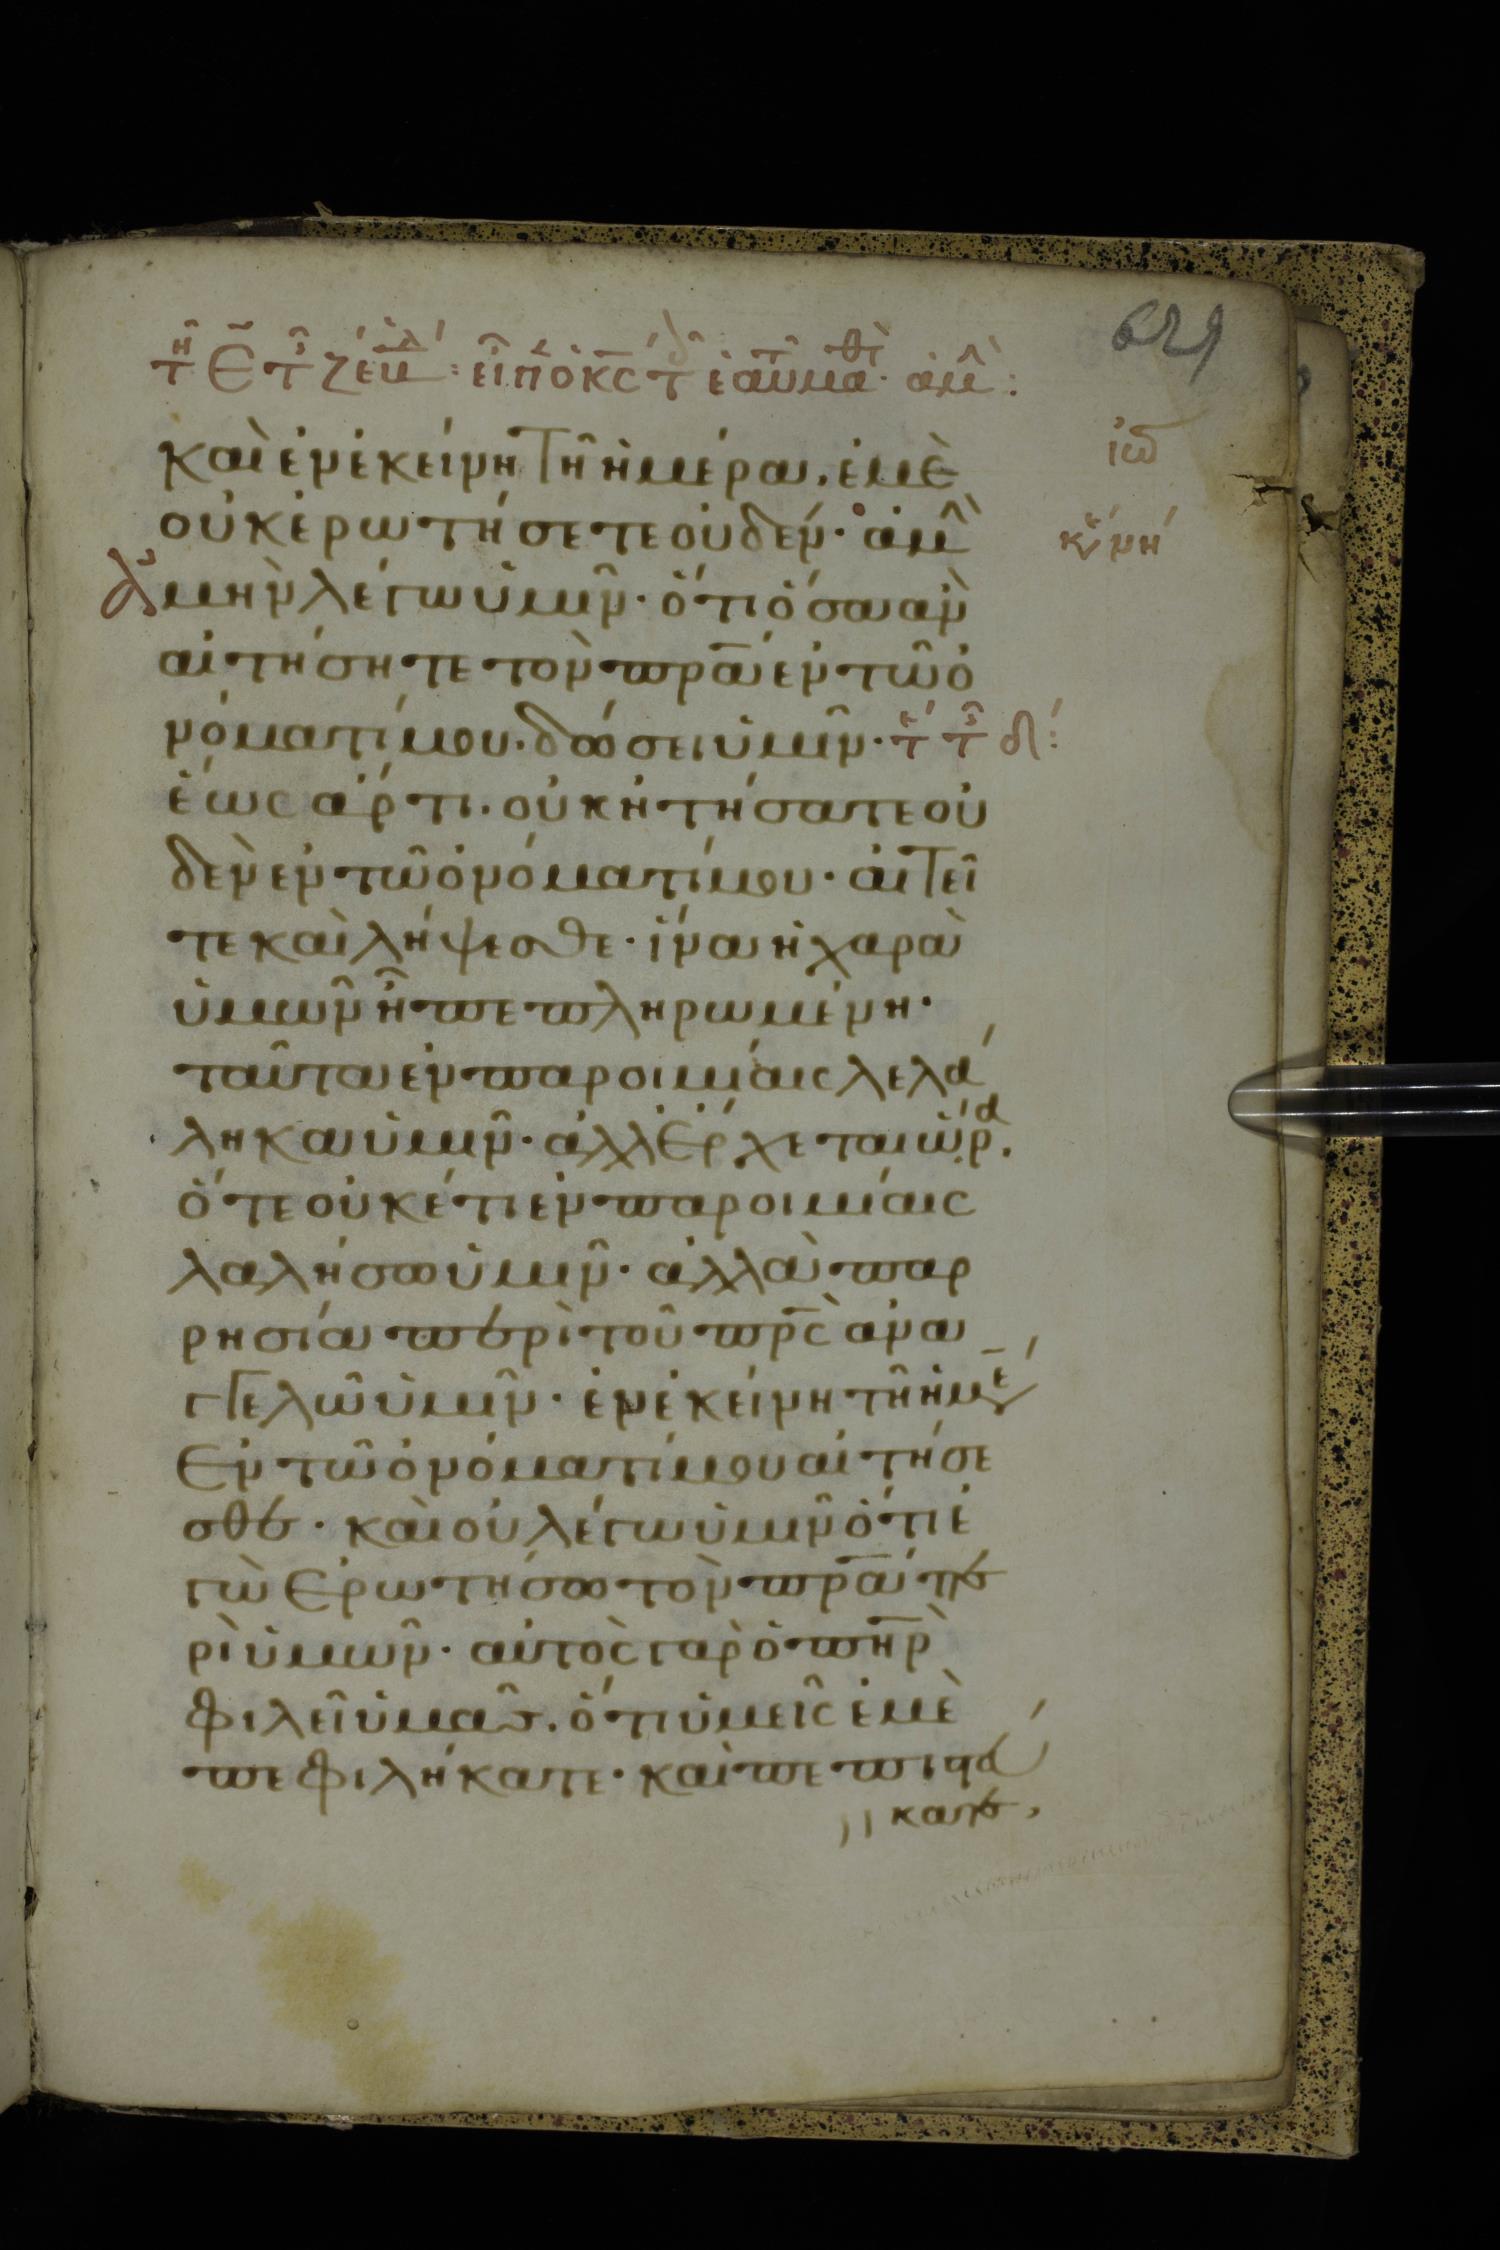 τῆ Ε τῆς ζ ἑβδ: εἶπ ὁ κς τ ἑαυ μαθτ· ἀμ:
και ἐν ἐκείνη τῆ ἡμέρα, ἐμὲ
οὐκ ἐρωτήσετε οὐδέν· ἀμ
Ἀμὴν λέγω ὑμῖν· ὅτι ὅσα ἀν
αἰτήσητε τὸν πρα ἐν τῶ ὀ
νόματί μου. δώσει ὑμῖν·
ἕως ἄρτι. οὐκ ἠτήσατε οὐ
δὲν ἐν τῶ ὀνόματί μου· αἰτεῖ
τε καὶ λήψεσθε· ἵνα ἡ χαρὰ
ὑμῶν ἦ πεπληρωμένη·
ταῦτα ἐν παροιμίαις λελά
ληκα ὑμῖν· ἀλλ ἔρχεται ὥρα.
ὅτε οὐκέτι ἐν παροιμίαις
λαλήσω ὑμῖν· ἀλλὰ παρ
ρησία περὶ τοῦ πρς ἀνα
γγελῶ ὑμῖν· ἐν ἐκείνη τῆ ἡμέ
Ἐν τῶ ὀνόματί μου αἰτήσε
σθε· καὶ οὐ λέγω ὑμῖν ὅτι ἐ
γὼ ἐρωτήσω τὸν πρα πε
ρὶ ὑμῶν· αὐτὸς γαρ ὁ πηρ
φιλεῖ ὑμᾶς. ὅτι ὑμεῖς ἐμὲ
πεφιλήκατε· καὶ πεπιστεύ
κατε,
ἰω